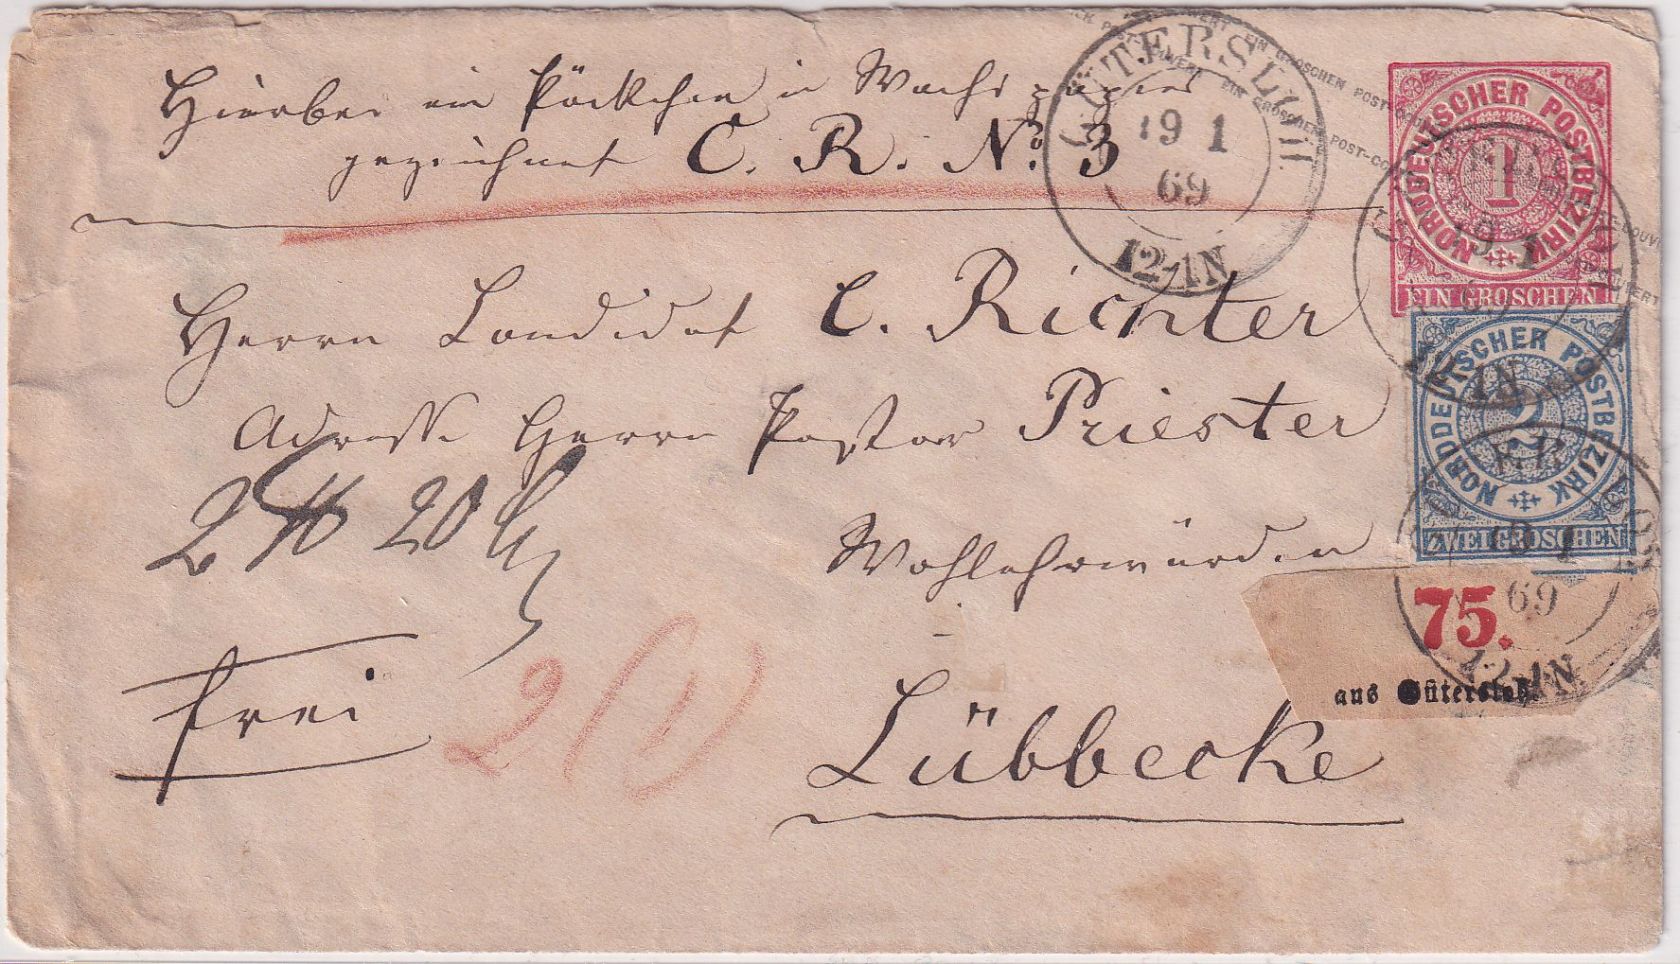 Hierbei ein Päckchen in Wachspapier
gezeichnet C. R. No. 3
GÜTERSLOH
19 1
69
12-1N
NORDDEUTSCHER POSTBEZIRK
1
EIN GROSCHEN
19 1
69
1N
Herrn Candidat C. Richter
Adresse Herrn Pastor Priester
Wohlehrwürden
Lübbecke
2 ℔ 20
frei
2 (1)
NORDDEUTSCHER POSTBEZIRK
2
ZWEI GROSCHEN
19 1
69
12-1N
75.
aus Gütersloh.